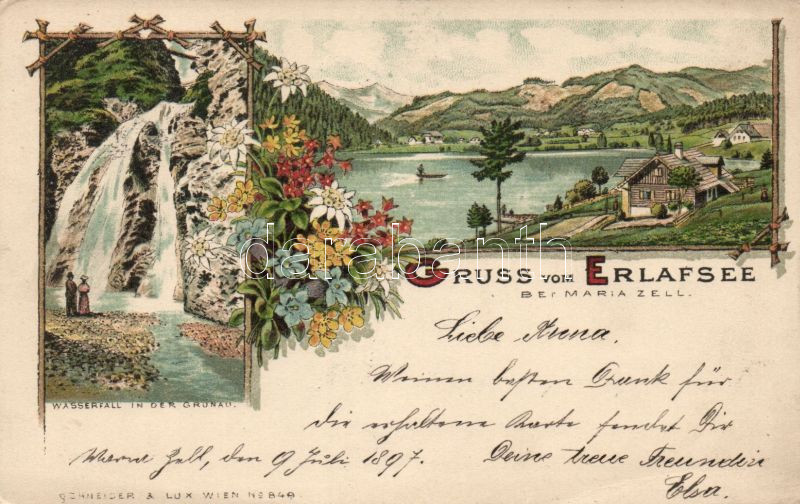 GRUSS VOM ERLAFSEE
BEI MARIA ZELL.
WASSERFALL IN DER GRÜNAU.
darabanth
Liebe Anna.
Meinen besten Dank für
die erhaltene Karte sendet Dir
Deine treue Freundin
Elsa.
Maria Zell, den 9 Juli 1897.
SCHNEIDER & LUX WIEN No 849